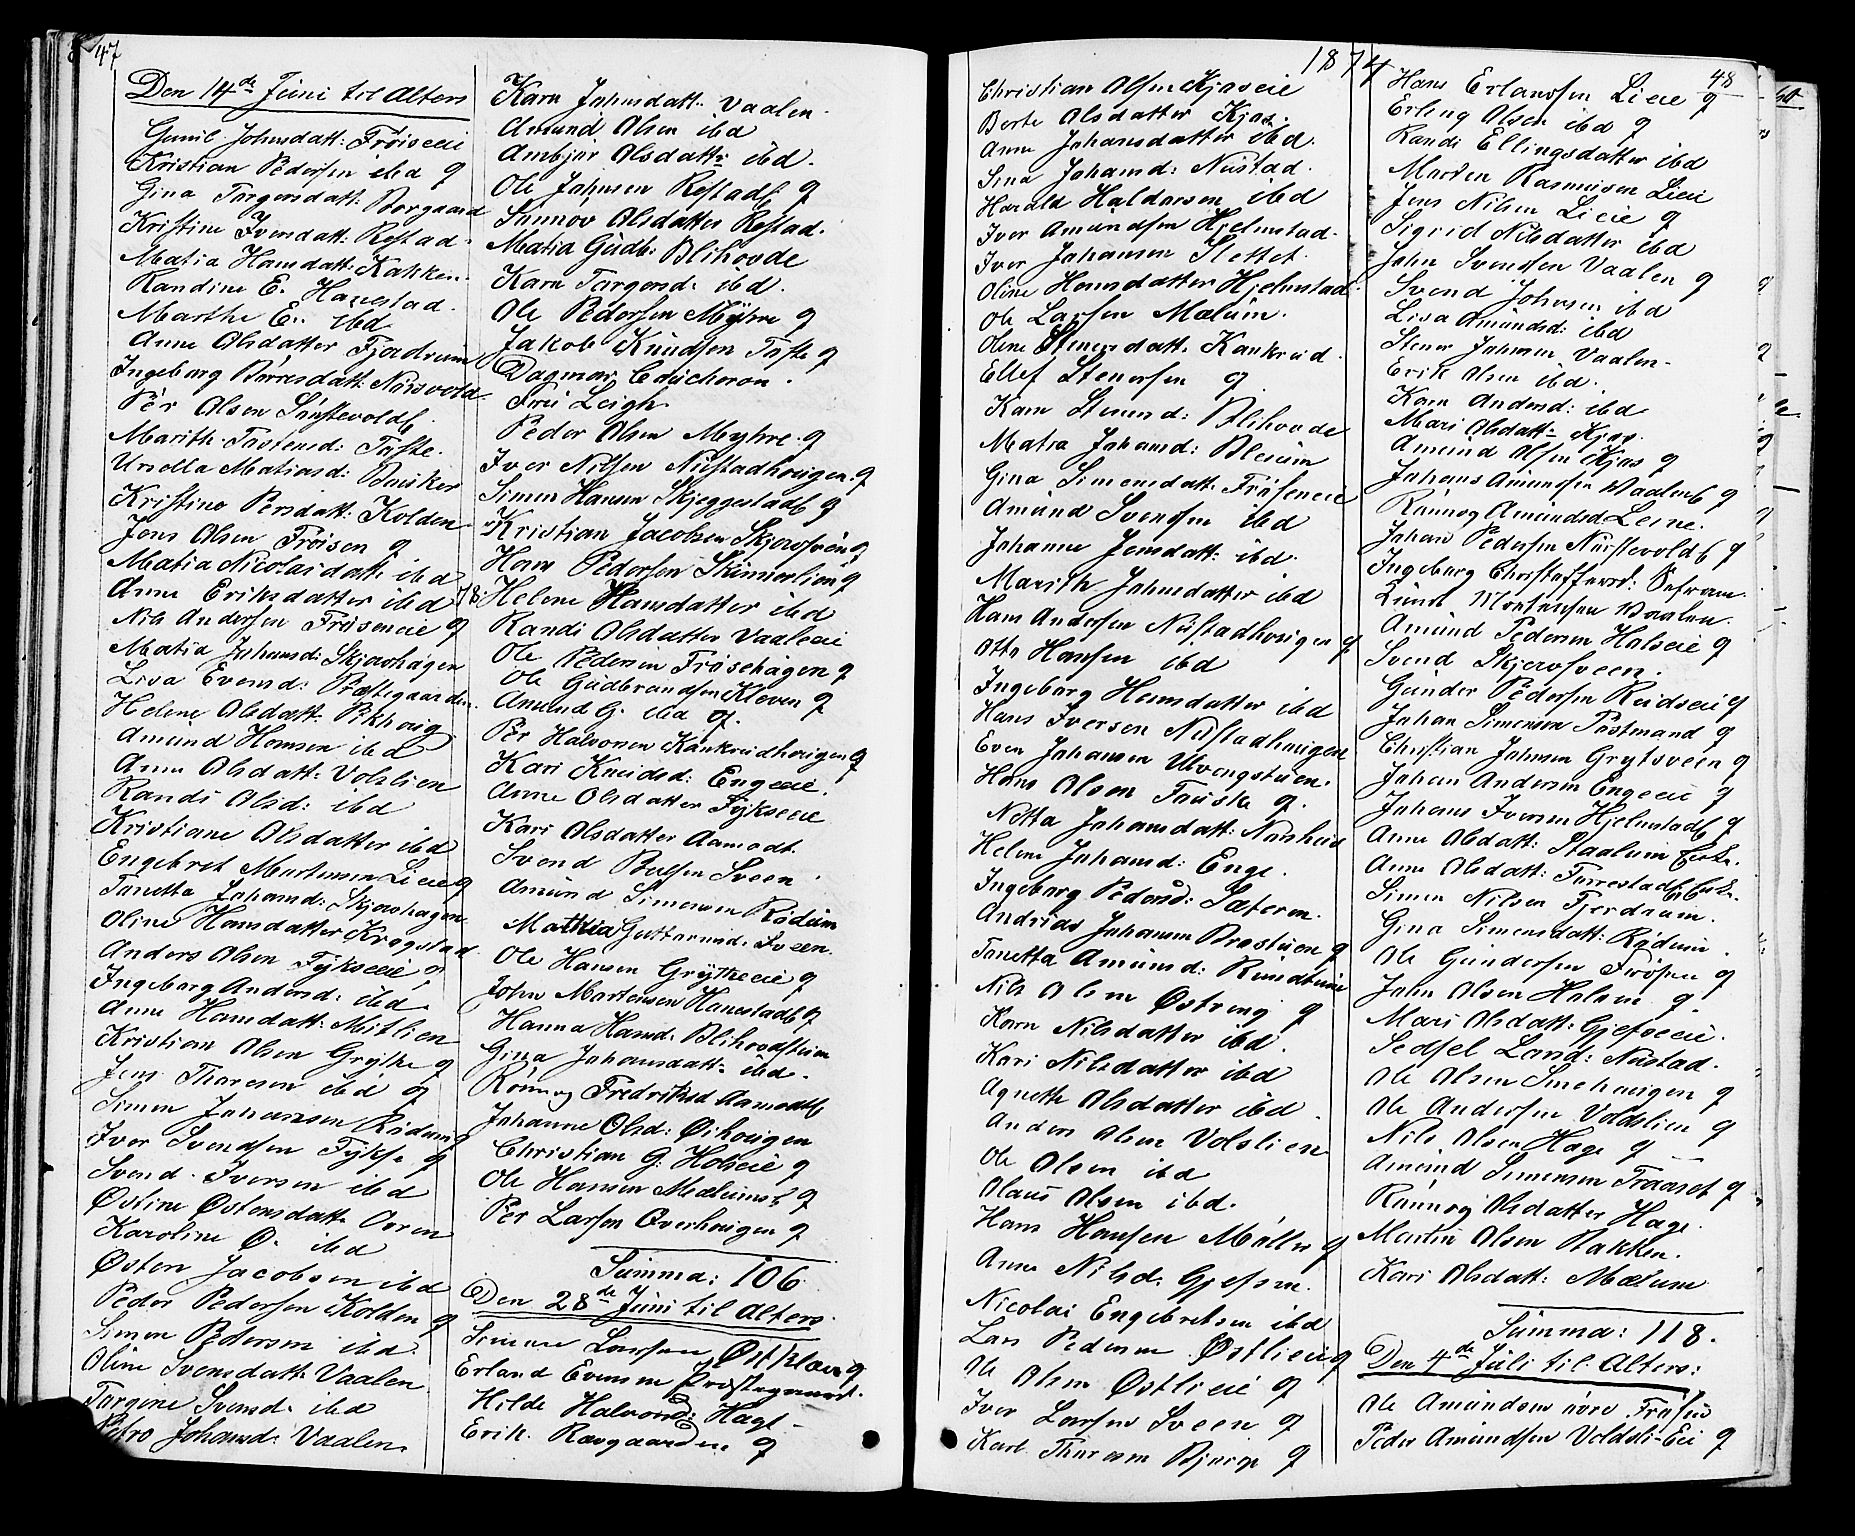 47
Den 14de Juni til Alters
Gunil Johnsdatt: Frøiseeie
Kristian Pedersen ibd g
Gina Torgersdatt: Borgaard
Kristine Iversdatt: Rostad
Matia Hansdatt: Kakken
Randine E. Hanestad.
Marthe E. ibd
Anne Olsdatter Fjordrum
Ingeborg Børresdatt: Norsvold
Per Olsen
Marith Tostensd: Tofte.
Ursella Matiasd: Busker
Kristine Persdatt: Kolden
Jens Olsen Frøisen g
Matia Nicolaidatt: ibd
Anne Eriksdatter ibd
Nils Andersen Frøseneie g
Matia Johansd: Skjævhagen
Lisa Evensd: Præstegaarden.
Helene Olsdatt:
Amund Hansen ibd
Anne Olsdatt: Volslien
Randi Olsd: ibd
Kristiane Olsdatter ibd
Engebret Mortensen Lieie g
Tonetta Johansd: Skjævhagen
Oline Hansdatter Krogstad
Anders Olsen Fykseeie g
Ingeborg Andersd: ibd
Anne Hansdatt: Mitlien
Kristian Olsen Grytke g
Jens Thoresen ibd g
Simen Johannsen Rødum g
Iver Svendsen Fykse g
Svend Iversen ibd
Østine Østensdatt: Oren
Karoline Ø. ibd
Østen Jacobsen ibd
Peder Pedersen Kolden g
Simen Pedersen ibd.
Oline Svensdatt: Vaalen
Torgine Svensd: ibd
Johansd: Vaalen
Karn Johnsdatt: Vaalen.
Amund Olsen ibd
Ambjør Olsdatt: ibd.
Ole Johnsen Rostad g
Sunnov Olsdatter Rostad.
Matia Gudb: Blihovde
Karn Torgersd: ibd.
Ole Pedersen Myhre g
Jakob Knudsen Tofte g
Dagmar
Fru Leigh
Peder Olsen Myhre g
Iver Nilsen Nustadhougen g
Simen Hansen Skjeggestad g
Kristian Jacobsen Skjærfsven g
Hans Pedersen Skinnerlien g
78. Helene Hansdatter ibd
Randi Olsdatter Vaaleeie
Ole Pedersen Frøisehagen g
Ole Gudbrandsen Kleven g
Amund G. ibd g.
Per Halvorsen Kankrudhougen g
Kari Knudsd: Engeeie.
Anne Olsdatter Fykseeie
Kari Olsdatter Aamodt
Svend Sveen.
Amund Simensen Rødum
Mathia Guttormsd: Sveen.
Ole Hansen Grytkeeie g
John Mortensen Hanestad g
Hanna Hansd: Blihovdstuen
Gina Johansdatt: ibd.
Rønnog Fredriksd Aamodt
Johanne Olsd: Øihougen
Christian G: Holseie g
Ole Hansen Mælums g
Per Larsen Overhougen g
Summa: 106
Den 28de Juni til Alters
Simen Larsen g
Erland Evensen Præstegaard.
Hilde Halvorsd: Hage
Erik Ravgaarden g
1874
Christian Olsen Kjoseie
Berte Olsdatter Kjos.
Anne Johansdatter ibd.
Sina Johansd: Nustad.
Harald Haldorsen ibd
Iver Amundsen Hjelmstad.
Iver Johansen Slettet.
Oline Hansdatter Hjelmstad.
Ole Larsen Mælum.
Oline Stenersdatt: Kankrud.
Ellef Stenersen g
Karn Stenersd: Blihovde
Matea Johansd: Bleium
Gina Simensdatt: Frøseneie
Amund Svendsen ibd
Johanne Jensdatt: ibd.
Marith Johnsdatter ibd
Hans Andersen Nustadhougen g
Otto Hansen ibd
Ingeborg Hansdatter ibd
Hans Iversen Nustadhougen
Even Johansen Ulvengstuen.
Hans Olsen Fauske g.
Netta Johansdatt: Nusheie
Helene Johansd: Enge.
Ingeborg Pedersd: Sæteren.
Andreas Johansen Brostuen g
Tonetta Amundsd: Rundtuen
Nils Olsen Østeng g
Karn Nilsdatter ibd.
Kari Nilsdatter ibd
Agnethe Olsdatter ibd.
Anders Olsen Volslien
Ole Olsen ibd
Olaus Olsen ibd.
Hans Hansen Møller g
Anne Nilsd: Gjefsen.
Nicolai Engebretsen ibd
Lars Pedersen Østlieeie g
Ole Olsen Østlieie g
Iver Larsen Sveen g
Karl Thoresen Bjerge g
48
Hans Erlandsen Lieie g
Erling Olsen ibd g
Randi Ellingsdatter ibd
Morten Rasmusen Lieie
Jens Nilsen Lieie g
Sigrid Nilsdatter ibd
John Svendsen Vaalen g
Svend Johnsen ibd
Lisa Amundsd: ibd
Stener Johnsen Vaalen
Erik Olsen ibd.
Karn Andersd: ibd
Mari Olsdatt: Kjos.
Amund Olsen Kjos g
Johans Amundsen Vaalen g
Rønnog Amundsd Leine.
Johan Pedersen Nustevold g
Ingeborg Christoffersd:
Knud Mortensen Vaalen.
Amund Pedersen Holseie g
Svend Skjerfsveen.
Gunder Pedersen Rudseie g
Johan Simensen Postmand g
Christian Johnsen Grytsveen g
Johan Andersen Engeeie g
Johans Iversen Hjelmstad g
Anne Olsdatt: Staalum Enke.
Anne Olsdatt: Torrestad Enke.
Simen Nilsen Fjerdrum.
Gina Simensdatt: Rødum.
Ole Gundersen Frøsen g
John Olsen Holsen g.
Mari Olsdatt: Gjefseeie.
Sedsel Larsd: Nustad.
Ole Olsen Smehougen g
Ole Andersen Voldslien g
Nils Olsen Hage g
Amund Simensen Traaset g
Rønnog Olsdatter Hage.
Martin Olsen Bakken.
Kari Olsdatt: Mælum
Summa: 118.
Den 4de Juli til Alters:
Ole Amundsen øvre Frøsen
Peder Amundsen Voldsli-Eie g